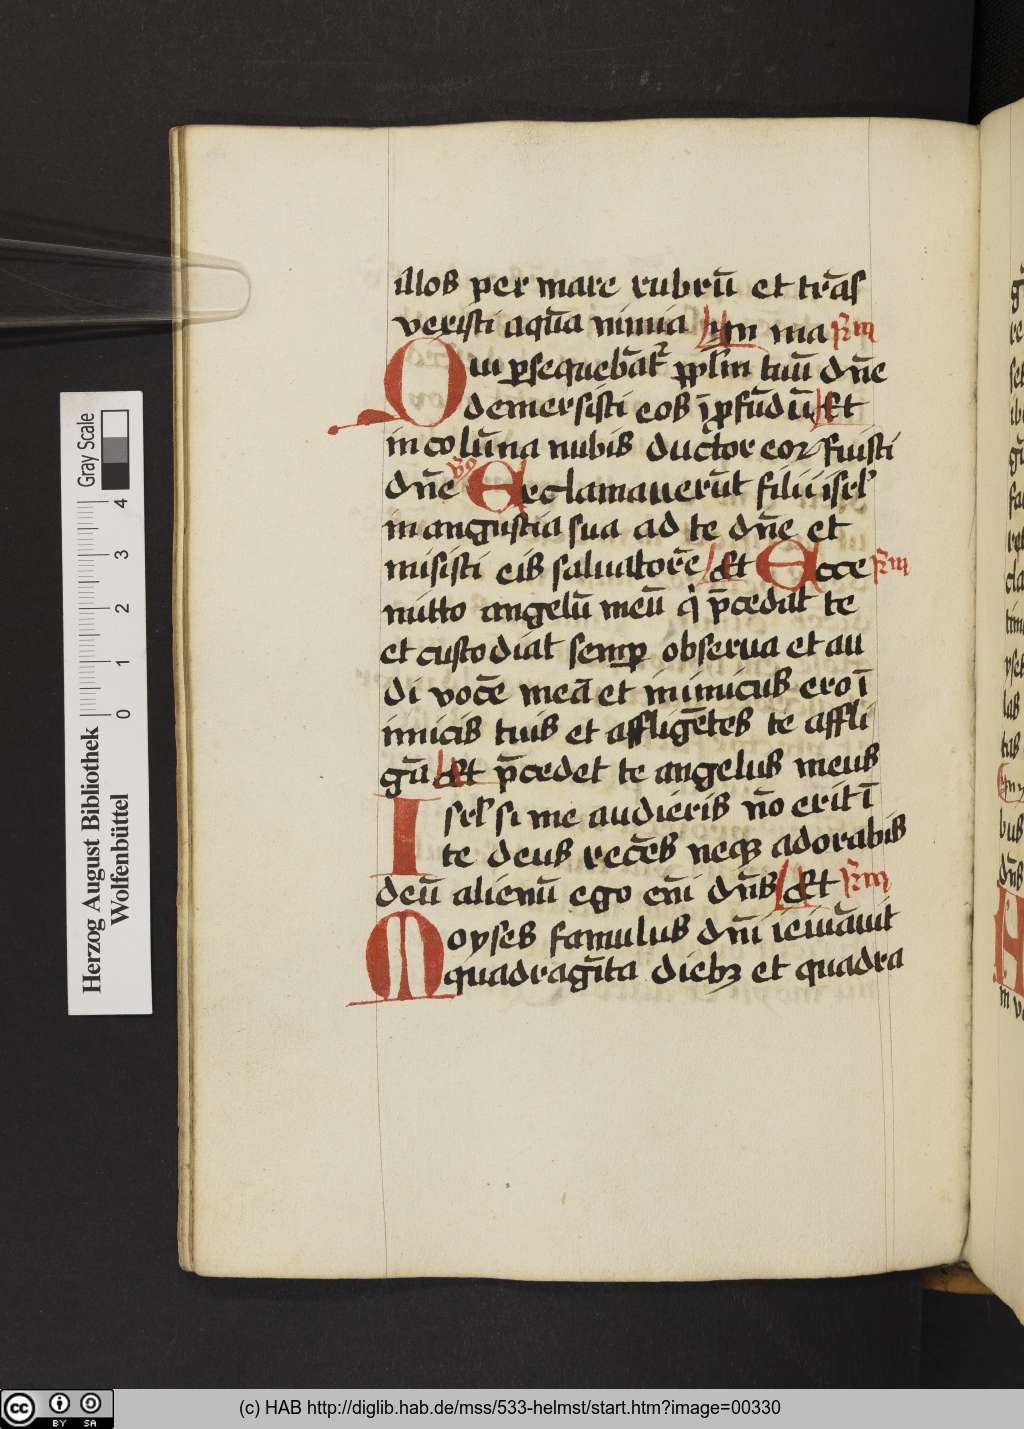 illos per mare rubrū et trās
veristi aquā nimia ym ma
Qui ꝑsequebāt᷑ ppl̄m tuū dn̄e
demersisti eos ī ꝓfūdū Et
in colūna nubis ductor eoꝝ fuisti
dn̄e Et clamauerūt filii isrl̄
in angustia sua ad te dn̄e et
misisti eis saluatorē Et Ecce
mitto angelū meū q̇ p̄cedat te
et custodiat semꝑ obserua et au
di vocē meā et inimicus ero ī
imicis tuis et affligētes te affli
gā Et p̄cedet te angelus meus
Isrl̄ si me audieris nō erit ī
te deus recēs neqꝫ adorabis
deū alienū ego em̄ dn̄s Et
Moyses famulus dn̄i ieiunāuit
quadragīta diebꝫ et quadra
Gray Scale
4 3 2 1 0
Herzog August Bibliothek
Wolfenbüttel
cc BY SA
(c) HAB http://diglib.hab.de/mss/533-helmst/start.htm?image=00330